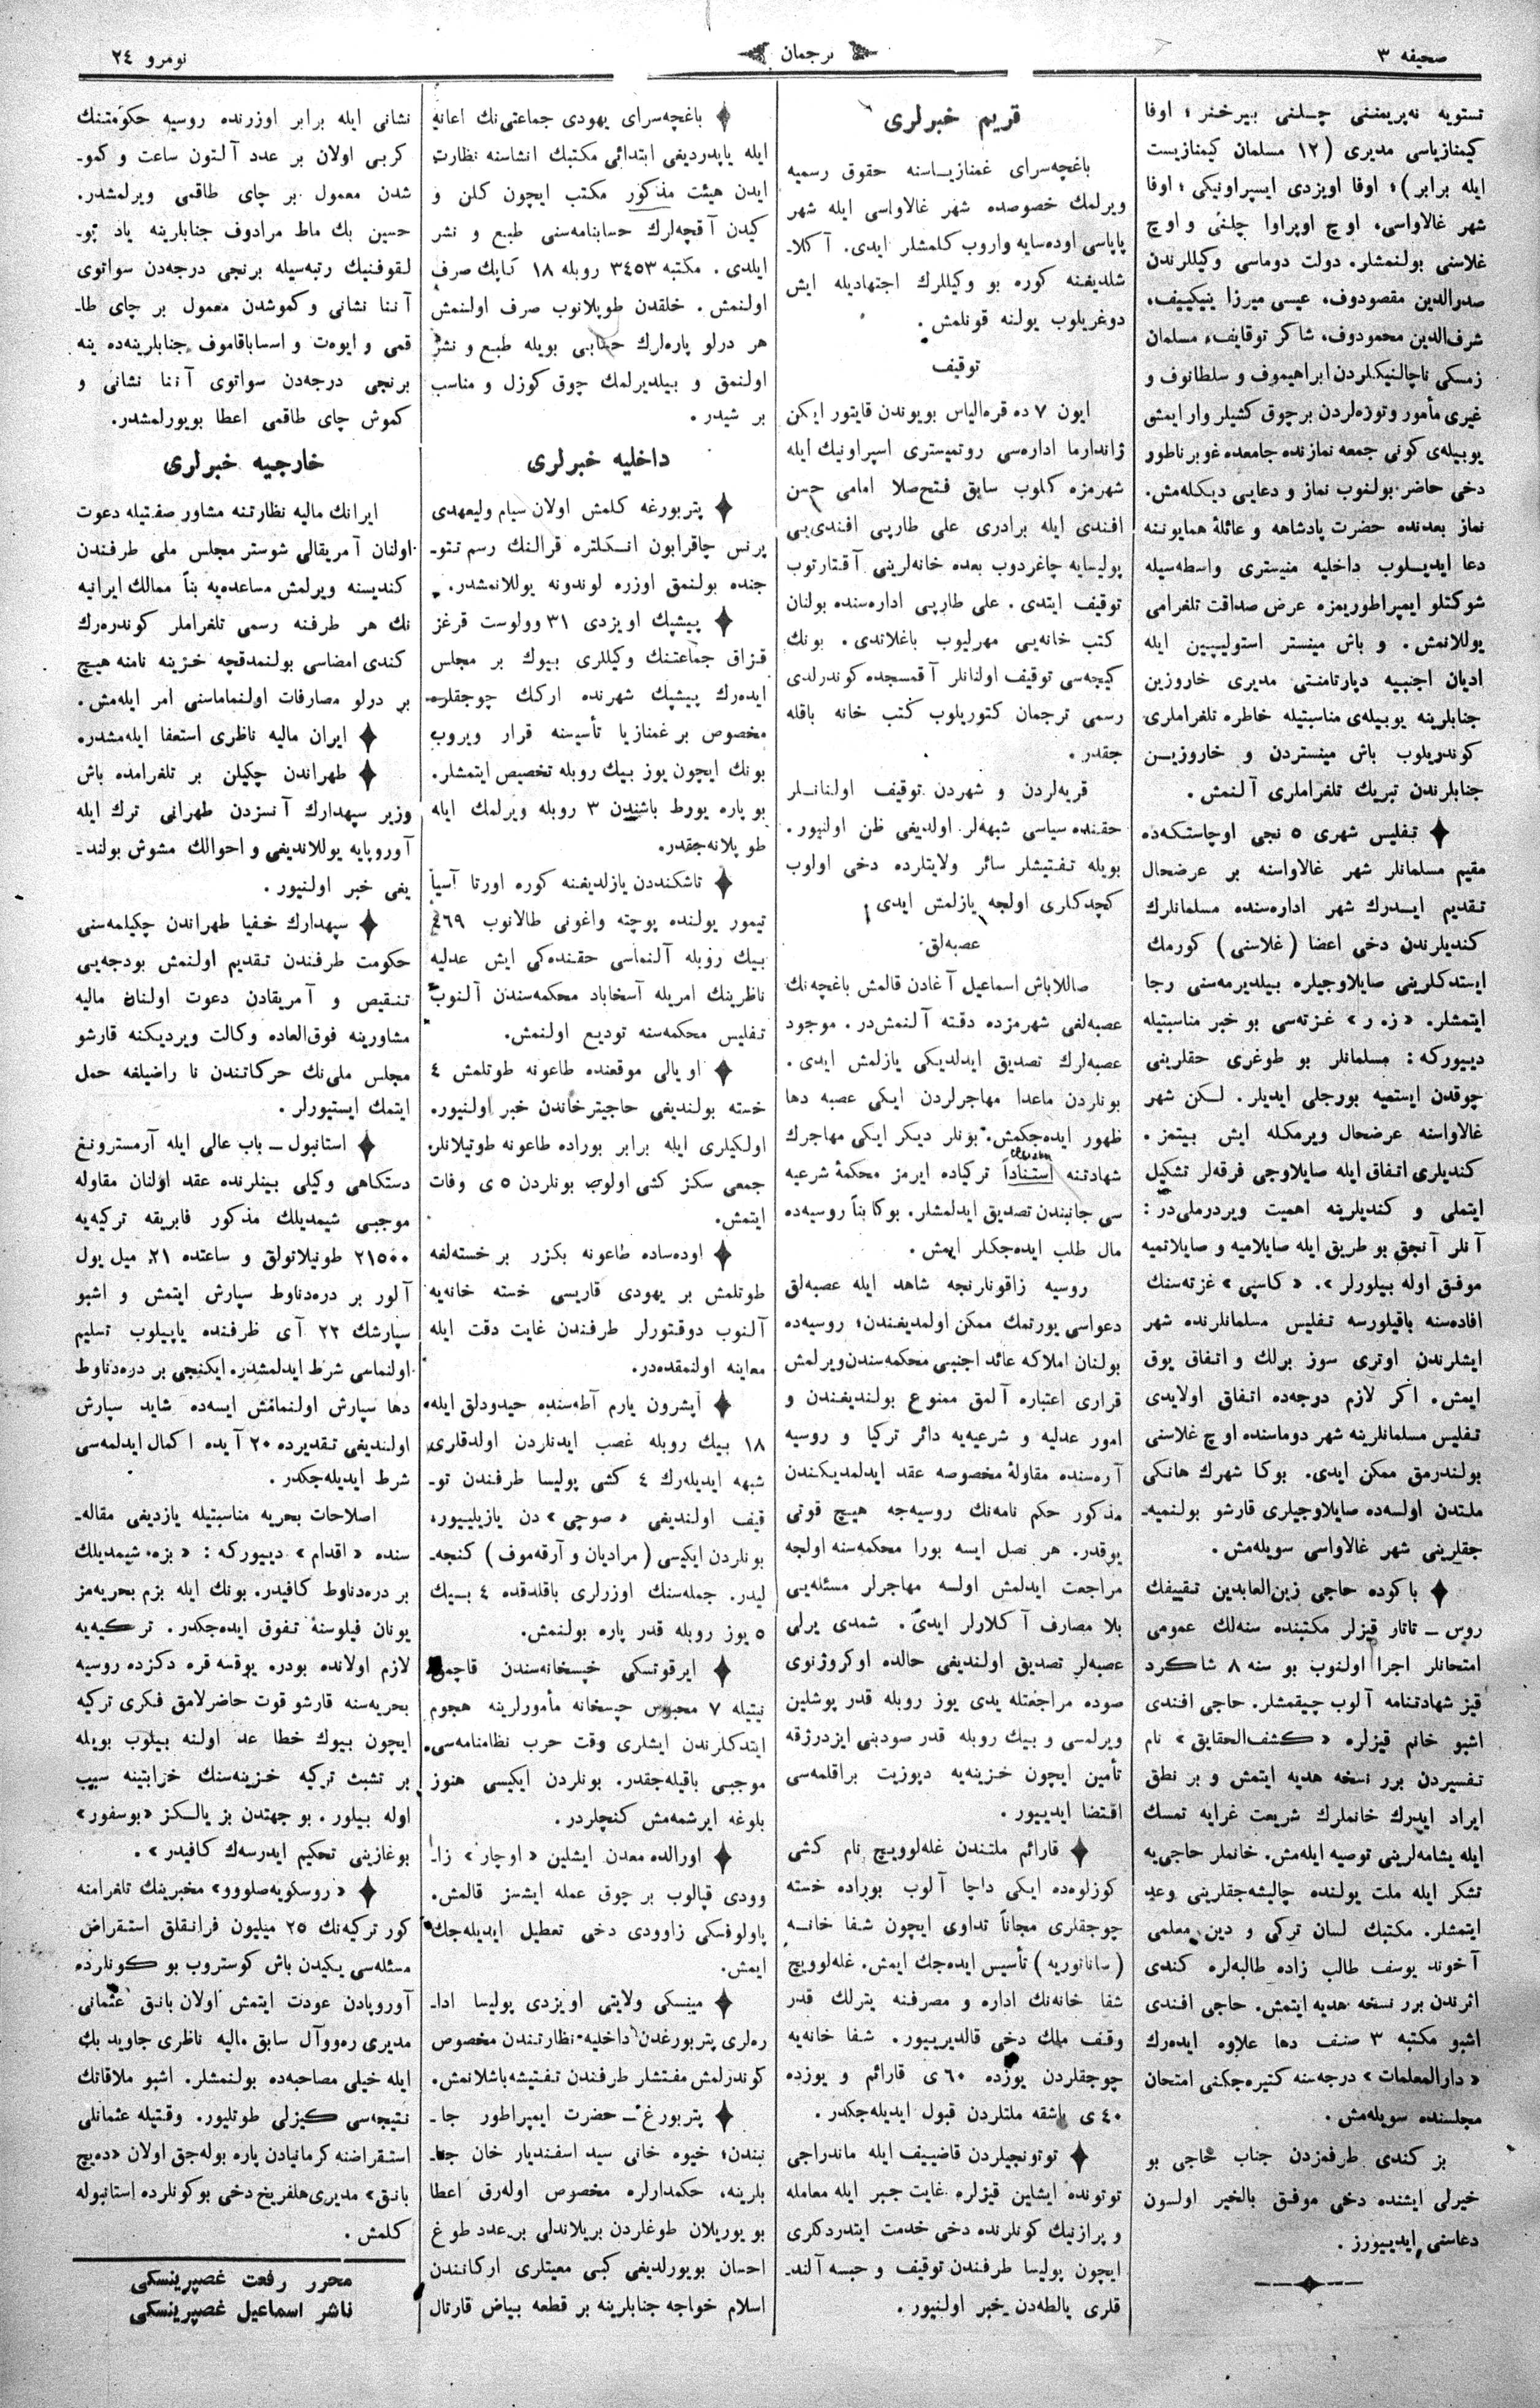 صحیفه ٣
ترجمان
نومرو ٢٤
تستویه نه‌پریمننی چلنی بیرخنر؛ اوفا
کیمنازیاسی مدیری (١٢ مسلمان کیمنازیست
ایله برابر)؛ اوفا اویزدی ایسپراونیکی؛ اوفا
شهر غالاواسی، اوچ اوپراوا چلنی و اوچ
غلاسنی بولنمشلر. دولت دوماسی وکیللرندن
صدرالدین مقصودوف، عیسی میرزا ینیکییف،
شرف‌الدین محمودوف، شاکر توقایف، مسلمان
زمسکی ناچالنیکلردن ابراهیموف و سلطانوف و
غیری مأمور و توره‌لردن برچوق کشیلر وار ایمش
یوبیله‌ی کونی جمعه نمازنده جامعده غوبرناطور
دخی حاضر بولنوب نماز و دعایی دیکله‌مش.
نماز بعدنده حضرت پادشاهه و عائلهٔ همایوننه
دعا ایدیلوب داخلیه منیستری واسطه‌سیله
شوکتلو ایمپراطوریمزه عرض صداقت تلغرامی
یوللانمش. و باش مینستر استولیپین ایله
ادیان اجنبیه دپارتامنتی مدیری خاروزین
جنابلرینه یوبیله‌ی مناسبتیله خاطره تلغراملری
کوندریلوب باش مینستردن و خاروزین
جنابلرندن تبریك تلغراملری آلنمش.
تفلیس شهری ٥ نجی اوچاستکه‌ده
مقیم مسلمانلر شهر غالاواسنه بر عرضحال
تقدیم ایدرك شهر اداره‌سنده مسلمانلرك
کندیلرندن دخی اعضا (غلاسنی) کورمك
ایستدکلرینی صایلاوجیلره بیلدیرمه‌سنی رجا
ایتمشلر. «زه ر» غزته‌سی بو خبر مناسبتیله
دییورکه: مسلمانلر بو طوغری حقلرینی
چوقدن ایستمیه بورجلی ایدیلر. لکن شهر
غالاواسنه عرضحال ویرمکله ایش بیتمز.
کندیلری اتفاق ایله صایلاوجی فرقه‌لر تشکیل
ایتملی و کندیلرینه اهمیت ویردرملی‌در:
آنلر آنجق بو طریق ایله صایلامیه و صایلانمیه
موفق اوله بیلورلر». «کاسپی» غزته‌سنك
افاده‌سنه باقیلورسه تفلیس مسلمانلرنده شهر
ایشلرندن اوتری سوز برلك و اتفاق یوق
ایمش. اکر لازم درجه‌ده اتفاق اولایدی
تفلیس مسلمانلرینه شهر دوماسنده اوچ غلاسنی
بولندرمق ممکن ایدی. بوکا شهرك هانکی
ملتدن اولسه‌ده صایلاوجیلری قارشو بولنمیه‌ـ
جقلرینی شهر غالاواسی سویله‌مش.
باکوده حاجی زین‌العابدین تقییفك
روس ـ تاتار قیزلر مکتبنده سنه‌لك عمومی
امتحانلر اجرا اولنوب بو سنه ٨ شاکرد
قیز شهادتنامه آلوب چیقمشلر. حاجی افندی
اشبو خانم قیزلره «کشف‌الحقایق» نام
تفسیردن برر نسخه هدیه ایتمش و بر نطق
ایراد ایدرك خانملرك شریعت غرایه تمسك
ایله یشامه‌لرینی توصیه ایله‌مش. خانملر حاجی‌یه
تشکر ایله ملت یولنده چالیشه‌جقلرینی وعد
ایتمشلر. مکتبك لسان ترکی و دین معلمی
آخوند یوسف طالب زاده طالبه‌لره کندی
اثرندن برر نسخه هدیه ایتمش. حاجی افندی
اشبو مکتبه ٣ صنف دها علاوه ایده‌رك
«دارالمعلمات» درجه‌سنه کتیره‌جکنی امتحان
مجلسنده سویله‌مش.
بز کندی طرفمزدن جناب حاجی بو
خیرلی ایشنده دخی موفق بالخیر اولسون
دعاسنی ایدییورز.
قریم خبرلری
باغچه‌سرای غمنازیاسنه حقوق رسمیه
ویرلمك خصوصده شهر غالاواسی ایله شهر
پاپاسی اوده‌سایه واروب کلمشلر ایدی. آکلاـ
شلدیغنه کوره بو وکیللرك اجتهادیله ایش
دوغریلوب یولنه قونلمش.
توقیف
ایون ٧ ده قره‌الیاس بویوندن قایتور ایکن
ژاندارما اداره‌سی روتمیستری اسپراونیك ایله
شهرمزه کلوب سابق فتح‌صلا امامی حسن
افندی ایله برادری علی طارپی افندی‌یی
پولیسایه چاغردوب بعده خانه‌لرینی آقتارتوب
توقیف ایتدی. علی طارپی اداره‌سنده بولنان
کتب خانه‌یی مهرلیوب باغلاندی. بونك
کیجه‌سی توقیف اولنانلر آقمسجده کوندرلدی
رسمی ترجمان کتوریلوب کتب خانه باقله
جقدر.
قریه‌لردن و شهردن توقیف اولنانلر
حقنده سیاسی شبهه‌لر اولدیغی ظن اولنیور.
بویله تفتیشلر سائر ولایتلرده دخی اولوب
کچدکلری اولجه یازلمش ایدی.
عصبه‌لق
صاللاباش اسماعیل آغادن قالمش باغچه‌نك
عصبه‌لغی شهرمزده دقته آلنمش‌در. موجود
عصبه‌لرك تصدیق ایدلدیکی یازلمش ایدی.
بونلردن ماعدا مهاجرلردن ایکی عصبه دها
ظهور ایده‌جکمش. بونلر دیکر ایکی مهاجرك
شهادتنه استناداً ترکیاده ایرمز محکمهٔ شرعیه
سی جانبندن تصدیق ایدلمشلر. بوکا بناً روسیه‌ده
مال طلب ایده‌جکلر ایمش.
روسیه زاقونلرنجه شاهد ایله عصبه‌لق
دعواسی یورتمك ممکن اولمدیغندن؛ روسیه‌ده
بولنان املاکه عائد اجنبی محکمه‌سندن ویرلمش
قراری اعتباره آلمق ممنوع بولندیغندن و
امور عدلیه و شرعیه‌یه دائر ترکیا و روسیه
آره‌سنده مقاولهٔ مخصوصه عقد ایدلمدیکندن
مذکور حکم نامه‌نك روسیه‌جه هیچ قوتی
یوقدر. هر نصل ایسه بورا محکمه‌سنه اولجه
مراجعت ایدلمش اولسه مهاجرلر مسئله‌یی
بلا مصارف آکلارلر ایدی. شمدی یرلی
عصبه‌لر تصدیق اولندیغی حالده اوکروژنوی
صوده مراجعتله یدی یوز روبله قدر پوشلین
ویرلمسی و بیك روبله قدر صودبنی ایزدرژقه
تأمین ایچون خزینه‌یه دپوزیت براقلمه‌سی
اقتضا ایدییور.
قارائم ملتندن غله‌لوویچ نام کشی
کوزلوه‌ده ایکی داچا آلوب بوراده خسته
چوجقلری مجاناً تداوی ایچون شفا خانه
(ساناتوریه) تأسیس ایده‌جك ایمش. غله‌لوویچ
شفا خانه‌نك اداره و مصرفنه یترلك قدر
وقف ملك دخی قالدیرییور. شفا خانه‌یه
چوجقلردن یوزده ٦٠ ی قارائم و یوزده
٤٠ ی باشقه ملتلردن قبول ایدیله‌جکدر.
توتونجیلردن قاضییف ایله ماندراجی
توتونده ایشلین قیزلره غایت جبر ایله معامله
و پرازنیك کونلرنده دخی خدمت ایتدردکلری
ایچون پولیسا طرفندن توقیف و حبسه آلندـ
قلری یالطه‌دن خبر اولنیور.
باغچه‌سرای یهودی جماعتی‌نك اعانه
ایله یاپدردیغی ابتدائی مکتبك انشاسنه نظارت
ایدن هیئت مذکور مکتب ایچون کلن و
کیدن آقچه‌لرك حسابنامه‌سنی طبع و نشر
ایلدی. مکتبه ٣٤٥٣ روبله ١٨ کاپك صرف
اولنمش. خلقدن طوپلانوب صرف اولنمش
هر درلو پاره‌لرك حسابی بویله طبع و نشر
اولنمق و بیلدیرلمك چوق کوزل و مناسب
بر شیدر.
داخلیه خبرلری
پتربورغه کلمش اولان سیام ولیعهدی
پرنس چاقرابون انکلتره قرالنك رسم تتوـ
جنده بولنمق اوزره لوندونه یوللانمشدر.
پیشپك اویزدی ٣١ وولوست قرغز
قزاق جماعتنك وکیللری بیوك بر مجلس
ایده‌رك پیشپك شهرنده ارکك چوجقلره
مخصوص بر غمنازیا تأسیسنه قرار ویروب
بونك ایچون یوز بیك روبله تخصیص ایتمشلر.
بو پاره یووط باشندن ٣ روبله ویرلمك ایله
طوپلانه‌جقدر.
تاشکنددن یازلدیغنه کوره اورتا آسیا
تیمور یولنده پوچته واغونی طالانوب ٦٩
بیك روبله آلنماسی حقنده‌کی ایش عدلیه
ناظرینك امریله آسخاباد محکمه‌سندن آلنوب
تفلیس محکمه‌سنه تودیع اولنمش.
او یالی موقعنده طاعونه طوتلمش ٤
خسته بولندیغی حاجیترخاندن خبر اولنیور.
اولکیلری ایله برابر بوراده طاعونه طوتیلانلر
جمعی سکز کشی اولوب بونلردن ٥ ی وفات
ایتمش.
اوده‌ساده طاعونه بکزر بر خسته‌لغه
طوتلمش بر یهودی قاریسی خسته خانه‌یه
آلنوب دوقتورلر طرفندن غایت دقت ایله
معاینه اولنمقده‌در.
آپشرون یارم آطه‌سنده حیدودلق ایله
١٨ بیك روبله غصب ایدنلردن اولدقلری
شبهه ایدیله‌رك ٤ کشی پولیسا طرفندن توـ
قیف اولندیغی «صوچی» دن یازیلییور.
بونلردن ایکیسی (مرادیان و آرقه‌موف) کنجه‌ـ
لیدر. جمله‌سنك اوزرلری باقلدقده ٤ بیك
٥ یوز روبله قدر پاره بولنمش.
ایرقوتسکی حپسخانه‌سندن قاچمق
نیتیله ٧ محبوس حپسخانه مأمورلرینه هجوم
ایتدکلرندن ایشلری وقت حرب نظامنامه‌سی
موجبی باقیله‌جقدر. بونلردن ایکیسی هنوز
بلوغه ایرشمه‌مش کنچلردر.
اورالده معدن ایشلین «اوچار» زاـ
وودی قپالوب بر چوق عمله ایشسز قالمش.
پاولوفسکی زاوودی دخی تعطیل ایدیله‌جك
ایمش.
مینسکی ولایتی اویزدی پولیسا اداـ
ره‌لری پتربورغدن داخلیه نظارتندن مخصوص
کوندرلمش مفتشلر طرفندن تفتیشه باشلانمش.
پتربورغ ـ حضرت ایمپراطور جاـ
نبندن؛ خیوه خانی سید اسفندیار خان جنا
بلرینه، حکمدارلره مخصوص اوله‌رق اعطا
بویوریلان طوغلردن بریلاندلی بر عدد طوغ
احسان بویورلدیغی کبی معیتلری ارکانندن
اسلام خواجه جنابلرینه بر قطعه بیاض قارتال
نشانی ایله برابر اوزرنده روسیه حکومتنك
کربی اولان بر عدد آلتون ساعت و کموـ
شدن معمول بر چای طاقمی ویرلمشدر.
حسین بك ماط مرادوف جنابلرینه یاد پوـ
لقوفنیك رتبه‌سیله برنجی درجه‌دن سواتوی
آننا نشانی و کموشدن معمول بر چای طاـ
قمی و ایوه‌ت و اساباقاموف جنابلرینه‌ده ینه
برنجی درجه‌دن سواتوی آننا نشانی و
کموش چای طاقمی اعطا بویورلمشدر.
خارجیه خبرلری
ایرانك مالیه نظارتنه مشاور صفتیله دعوت
اولنان آمریقالی شوستر مجلس ملی طرفندن
کندیسنه ویرلمش مساعده‌یه بناً ممالك ایرانیه
نك هر طرفنه رسمی تلغراملر کوندره‌رك
کندی امضاسی بولنمدقچه خزینه نامنه هیچ
بر درلو مصارفات اولنماماسنی امر ایله‌مش.
ایران مالیه ناظری استعفا ایله‌مشدر.
طهراندن چکیلن بر تلغرامده باش
وزیر سپهدارك آنسزدن طهرانی ترك ایله
آوروپایه یوللاندیغی و احوالك مشوش بولندـ
یغی خبر اولنیور.
سپهدارك خفیا طهراندن چکیلمه‌سنی
حکومت طرفندن تقدیم اولنمش بودجه‌یی
تنقیص و آمریقادن دعوت اولنان مالیه
مشاورینه فوق‌العاده وکالت ویردیکنه قارشو
مجلس ملی‌نك حرکاتندن نا راضیلغه حمل
ایتمك ایستیورلر.
استانبول ـ باب عالی ایله آرمسترونغ
دستکاهی وکیلی بینلرنده عقد اولنان مقاوله
موجبی شیمدیلك مذکور فابریقه ترکیه‌یه
٢١٥٠٠ طونیلاتولق و ساعتده ٢١ میل یول
آلور بر دره‌دناوط سپارش ایتمش و اشبو
سپارشك ٢٢ آی ظرفنده یاپیلوب تسلیم
اولنماسی شرط ایدلمشدر. ایکنجی بر دره‌دناوط
دها سپارش اولنمامش ایسه‌ده شاید سپارش
اولندیغی تقدیرده ٢٠ آیده اکمال ایدلمه‌سی
شرط ایدیله‌جکدر.
اصلاحات بحریه مناسبتیله یازدیغی مقاله‌ـ
سنده «اقدام» دییورکه: «بزه شیمدیلك
بر دره‌دناوط کافیدر. بونك ایله بزم بحریه‌مز
یونان فیلوسنهٔ تفوق ایده‌جکدر. ترکیه‌یه
لازم اولانده بودر. یوقسه قره دکزده روسیه
بحریه‌سنه قارشو قوت حاضرلامق فکری ترکیه
ایچون بیوك خطا عد اولنه بیلوب بویله
بر تشبث ترکیه خزینه‌سنك خرابیتنه سبب
اوله بیلور. بو جهتدن بز یالکز «بوسفور»
بوغازینی تحکیم ایدرسه‌ك کافیدر».
«روسکویه صلووو» مخبرینك تلغرامنه
کور ترکیه‌نك ٢٥ میلیون فرانقلق استقراض
مسئله‌سی یکیدن باش کوستروب بو کونلرده
آوروپادن عودت ایتمش اولان بانق عثمانی
مدیری ره‌ووآل سابق مالیه ناظری جاوید بك
ایله خیلی مصاحبه‌ده بولنمشلر. اشبو ملاقاتك
نتیجه‌سی کیزلی طوتلیور. وقتیله عثمانلی
استقراضنه کرمانیادن پاره بوله‌جق اولان «ده‌یچ
بانق» مدیری هلفریخ دخی بو کونلرده استانبوله
کلمش.
محرر رفعت غصپرینسکی
ناشر اسماعیل غصپرینسکی